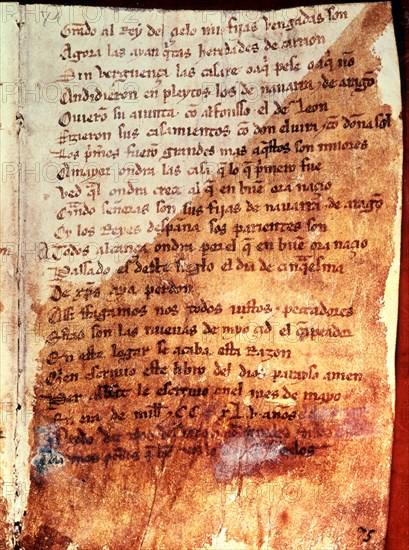 Grado al Rey del çielo mis fijas vengadas son
Agora las ayan q̃tas heredades de carrion
Sin verguença las casare oaq̃ pese oaq̃ nõ
Andidieron en pleytos los de nauarra ⁊ de aragõ
Ouierõ su aiunta cõ alfonsso el de Leon
Fizieron sus casamientos cõ don eluira ⁊ cõ doña sol
Los p̃mos fuerõ grandes mas aq̃stos son miiores
Amayor ondra las casa q̃ lo q̃ p̃mero fue
Ved q̃l ondra creçe al q̃ en buẽ ora naçio
Quãdo señoras son sus fijas de nauarra ⁊ de aragõ
Oy los Reyes despaña sos parientes son
A todos alcança ondra por el q̃ en buẽ ora naçio
Passado es deste sieglo el dia de cinq̃esma
De xp̃s aya perdon
Assi ffagamos nos todos iustos ⁊ peccadores
Estas son las nueuas de myo çid el canpeador
En este logar se acaba esta Razon
Quien escriuio este libro del dios parayso amen
Per abbat le escriuio enel mes de mayo
En era de mill ⁊ .C.C xL.v. años